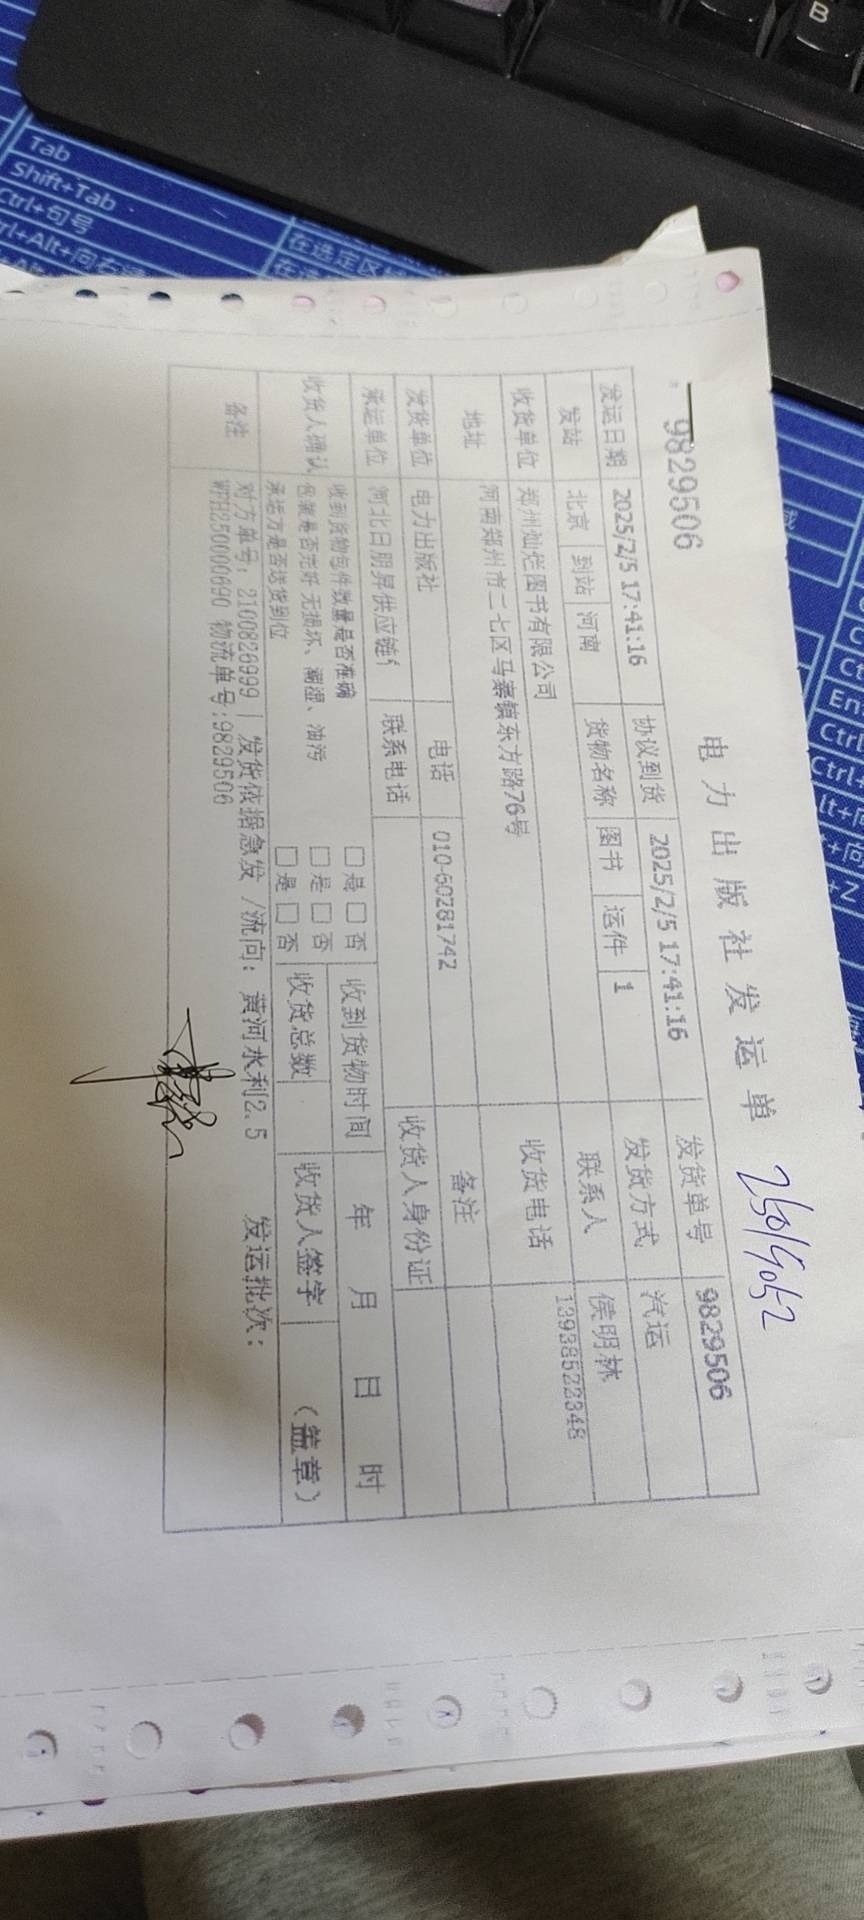 电力出版社发运单
25019052
9829506
发运日期 2025/2/5 17:41:16 协议到货 2025/2/5 17:41:16 发货单号 9829506
发站 北京 到站 河南 货物名称 图书 运件 1 发货方式 汽运
收货单位 郑州灿烂图书有限公司 联系人 侯明林
地址 河南郑州市二七区马寨镇东方路76号 收货电话 13938522348
发货单位 电力出版社 电话 010-60281742 备注
承运单位 河北日朋昇供应链 联系电话 收货人身份证
收货人确认 收到货物包件数量是否准确 □是 □否 收到货物时间 年 月 日 时
包装是否完好 无损坏、潮湿、油污 □是 □否
承运方是否送货到位 □是 □否 收货总数 收货人签字 （盖章）
备注 对方单号：2100826999 | 发货依据急发 /流向：黄河水利2.5 发运批次：
WFH250000690 物流单号:9829506
Tab
Shift+Tab
Ctrl+句号
在选定区域
B